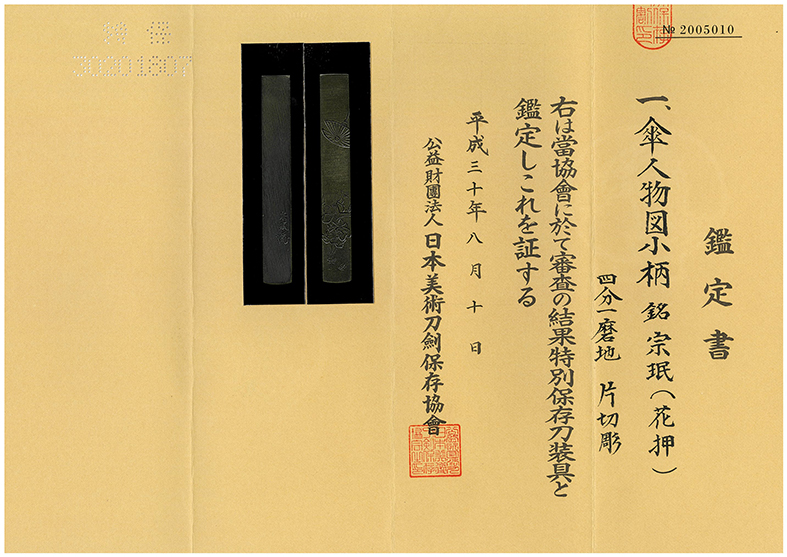 № 2005010
鑑定書
一、傘人物図小柄 銘 宗珉(花押)
四分一磨地 片切彫
右は當協會に於て審査の結果特別保存刀装具と
鑑定しこれを証する
平成三十年八月十日
公益財團法人 日本美術刀劍保存協會